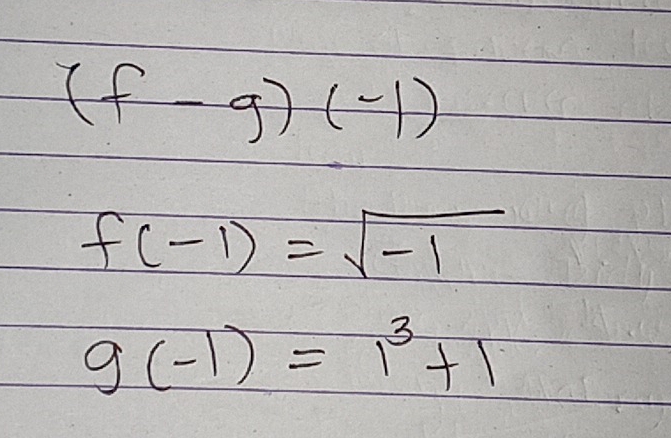 (f - g) (-1)
f(-1) = √-1
g(-1) = 1³+1